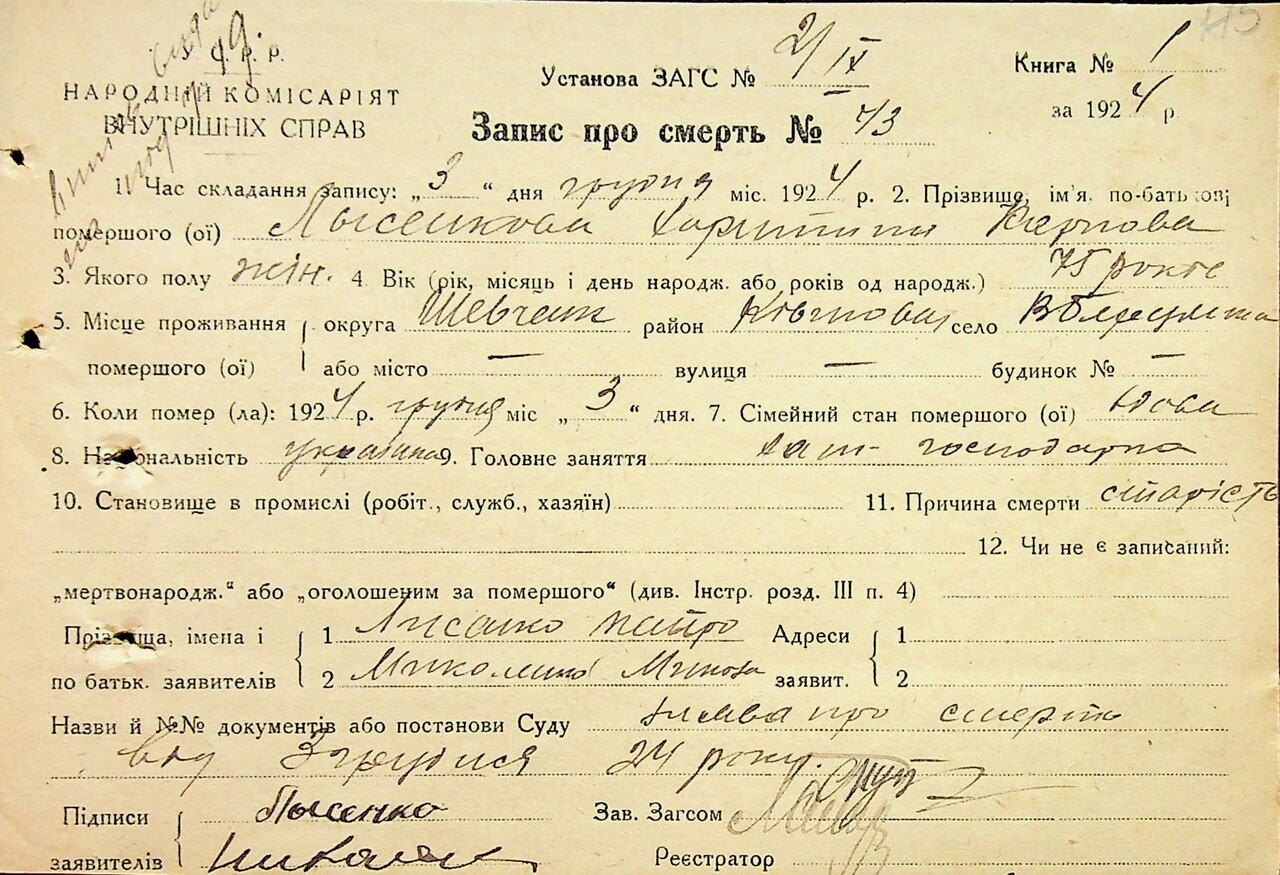 У. С. Р. Р.
НАРОДНІЙ КОМІСАРІЯТ
ВНУТРІШНІХ СПРАВ
Установа ЗАГС № 2/IX
Книга № 1
за 1924 р.
Запис про смерть № 43
1. Час складання запису: „3“ дня грудня міс. 1924 р. 2. Прізвище, ім'я, по-батькові
помершого (ої) Лысенкова Харитини Карпова
3. Якого полу жін. 4. Вік (рік, місяць і день народж. або років од народж.) 75 років
5. Місце проживання округа Шевченк район село
помершого (ої) або місто — вулиця — будинок № —
6. Коли помер (ла): 1924 р. грудня міс „3“ дня. 7. Сімейний стан помершого (ої) вдова
8. Національність українка 9. Головне заняття господарка
10. Становище в промислі (робіт., служб., хазяїн) 11. Причина смерти старість
12. Чи не є записаний:
„мертвонародж.“ або „оголошеним за помершого“ (див. Інстр. розд. III п. 4)
Прізвища, імена і 1 Лисенко Адреси 1
по батьк. заявителів 2 заявит. 2
Назви й №№ документів або постанови Суду заява про смерть
від 3 грудня 24 року.
Підписи Лысенко Зав. Загсом
заявителів Реєстратор